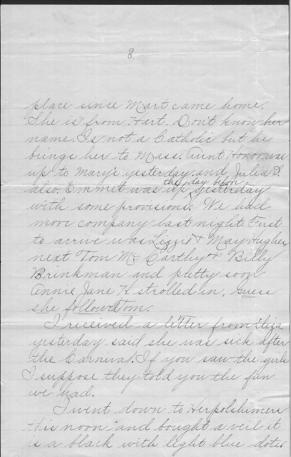 8.
place since Mart came home.
She is from Hart. Don't know her
name. Is not a Catholic but he
brings her to Mass. Aunt Honora was
up to Mary's yesterday and Julia
also. Emmet was up the day before yesterday
with some provisions. We had
more company last night First
to arrive was Lizzie & May Hughes
next Tom McCarthy & Billy
Brinkman and pretty soon
Annie Jane K strolled in. Guess
she followed Tom.
I received a letter from Eliza
yesterday. said she was sick after
the Carnival. If you saw the girls
I suppose they told you the fun
we had.
I went down to Herpolshimers
this noon and bought a veil it
is a black with light blue dots